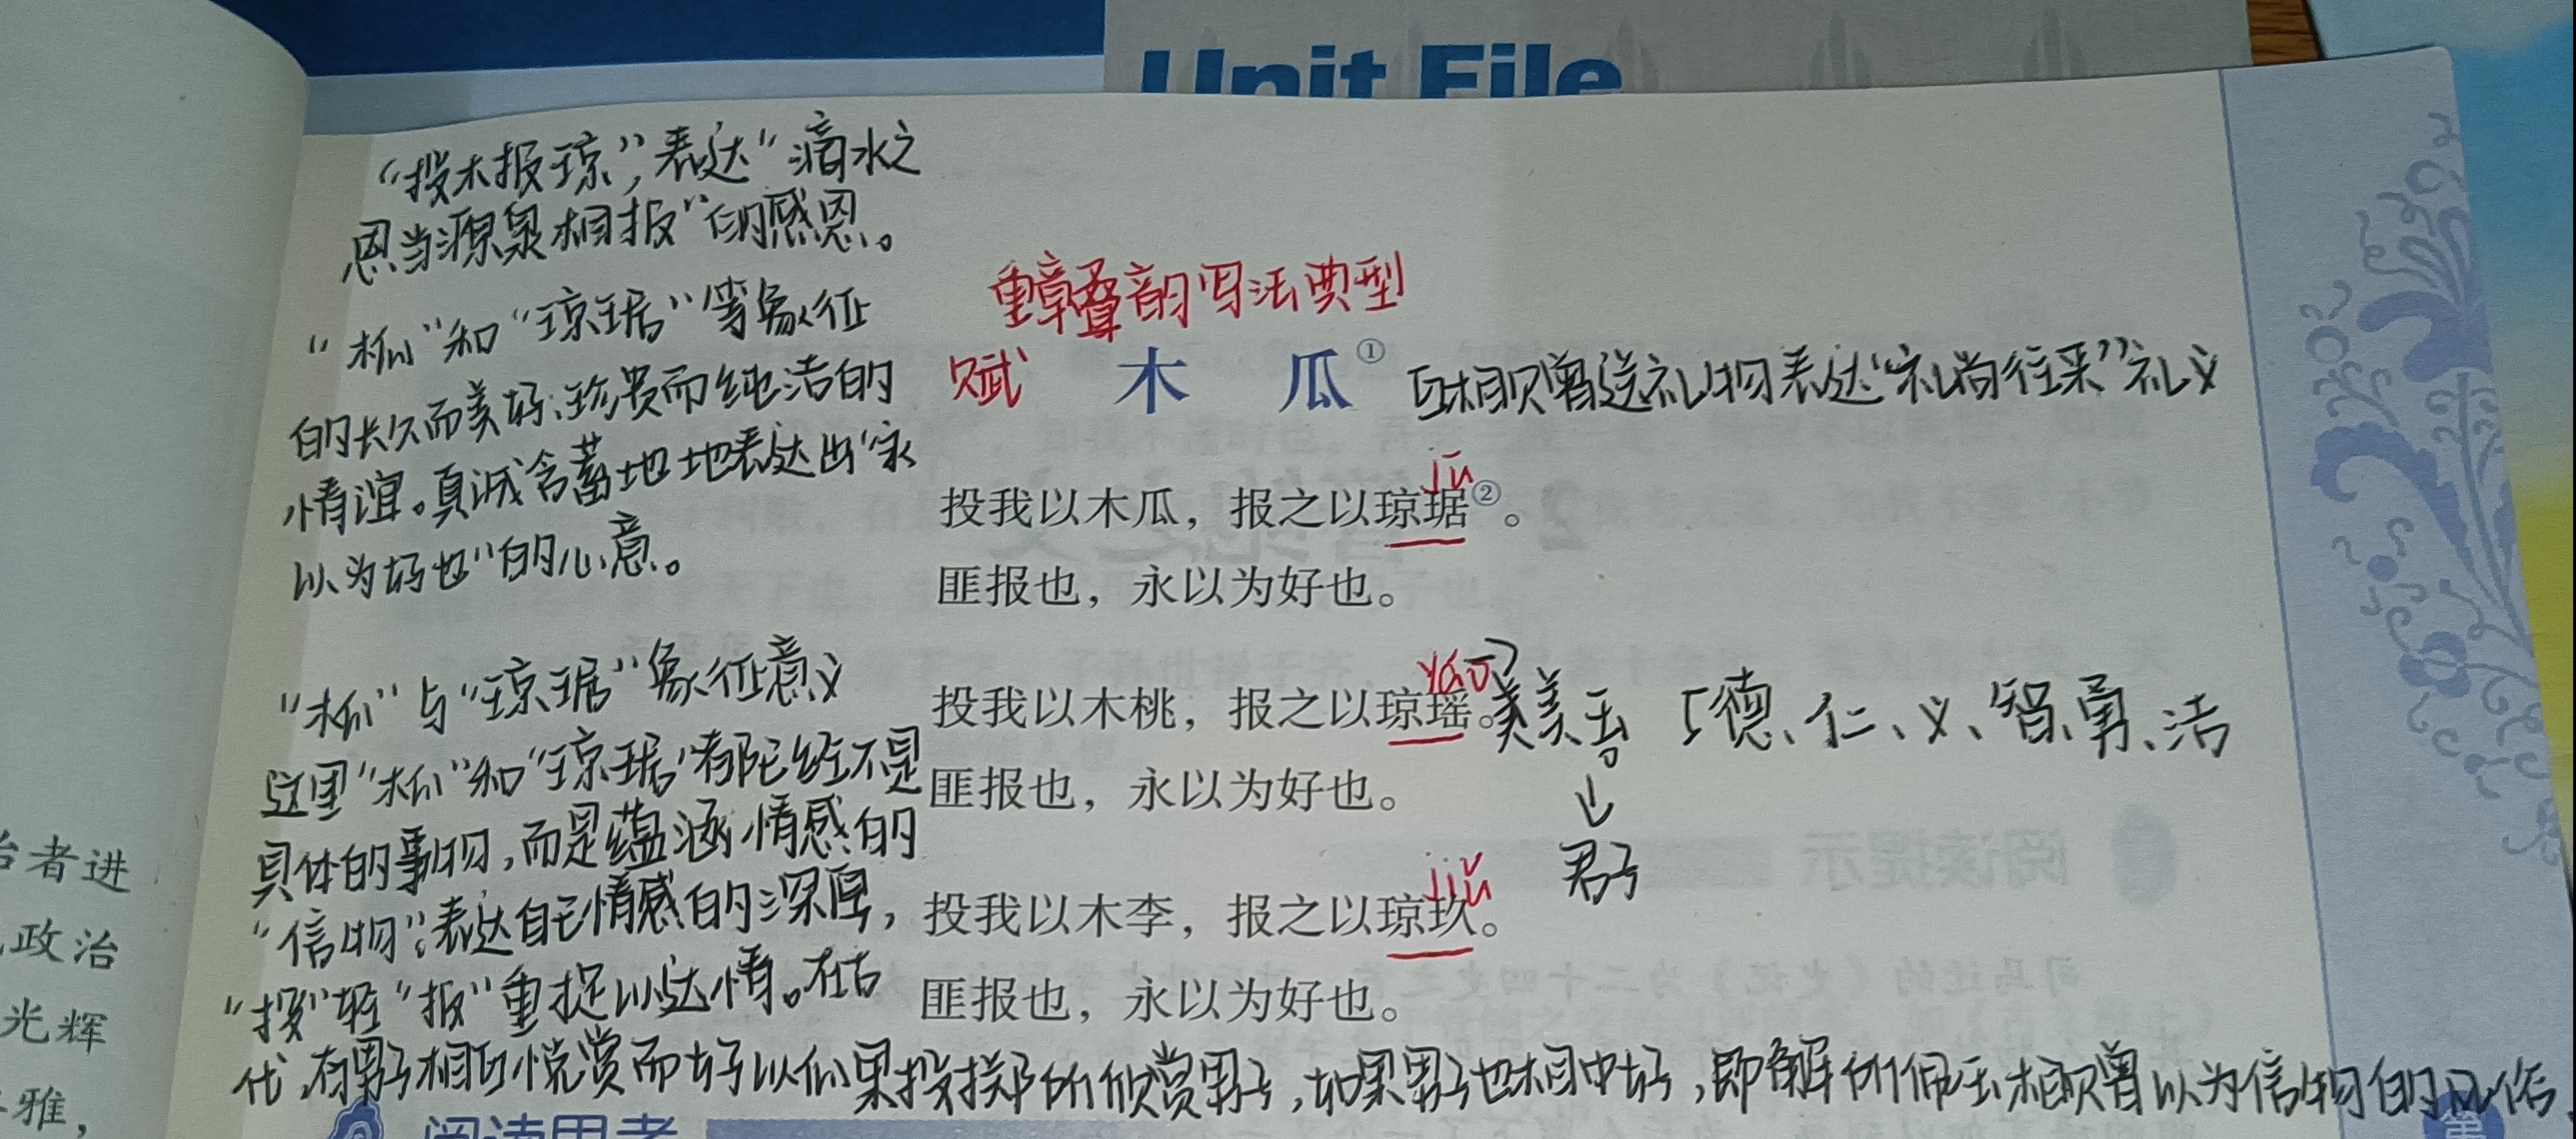 Unit File
“投木报琼”，表达“滴水之
恩当源泉相报”的感恩。
“木瓜”和“琼琚”等象征
的长久而美好、珍贵而纯洁的
情谊。真诚含蓄地地表达出“永
以为好也”的心意。
“木瓜”与“琼琚”象征意义
这里“木瓜”和“琼琚”都已经不是
具体的事物，而是蕴涵情感的
“信物”；表达自己情感的深厚，
“投”轻“报”重足以达情。在古
代，有男子相互悦赏而好以瓜果投掷所欣赏男子，如果男子也相中好，即解所佩玉相赠以为信物的风俗，
重章叠韵写法典型
赋 木 瓜① 互相赠送礼物表达“礼尚往来”礼义
jū
投我以木瓜，报之以琼琚②。
匪报也，永以为好也。
yáo
投我以木桃，报之以琼瑶。美美玉 德、仁、义、智、勇、洁
↓
匪报也，永以为好也。
君子
jiǔ
投我以木李，报之以琼玖。
匪报也，永以为好也。
阅读思考
治者进
政治
光辉
雅，
第